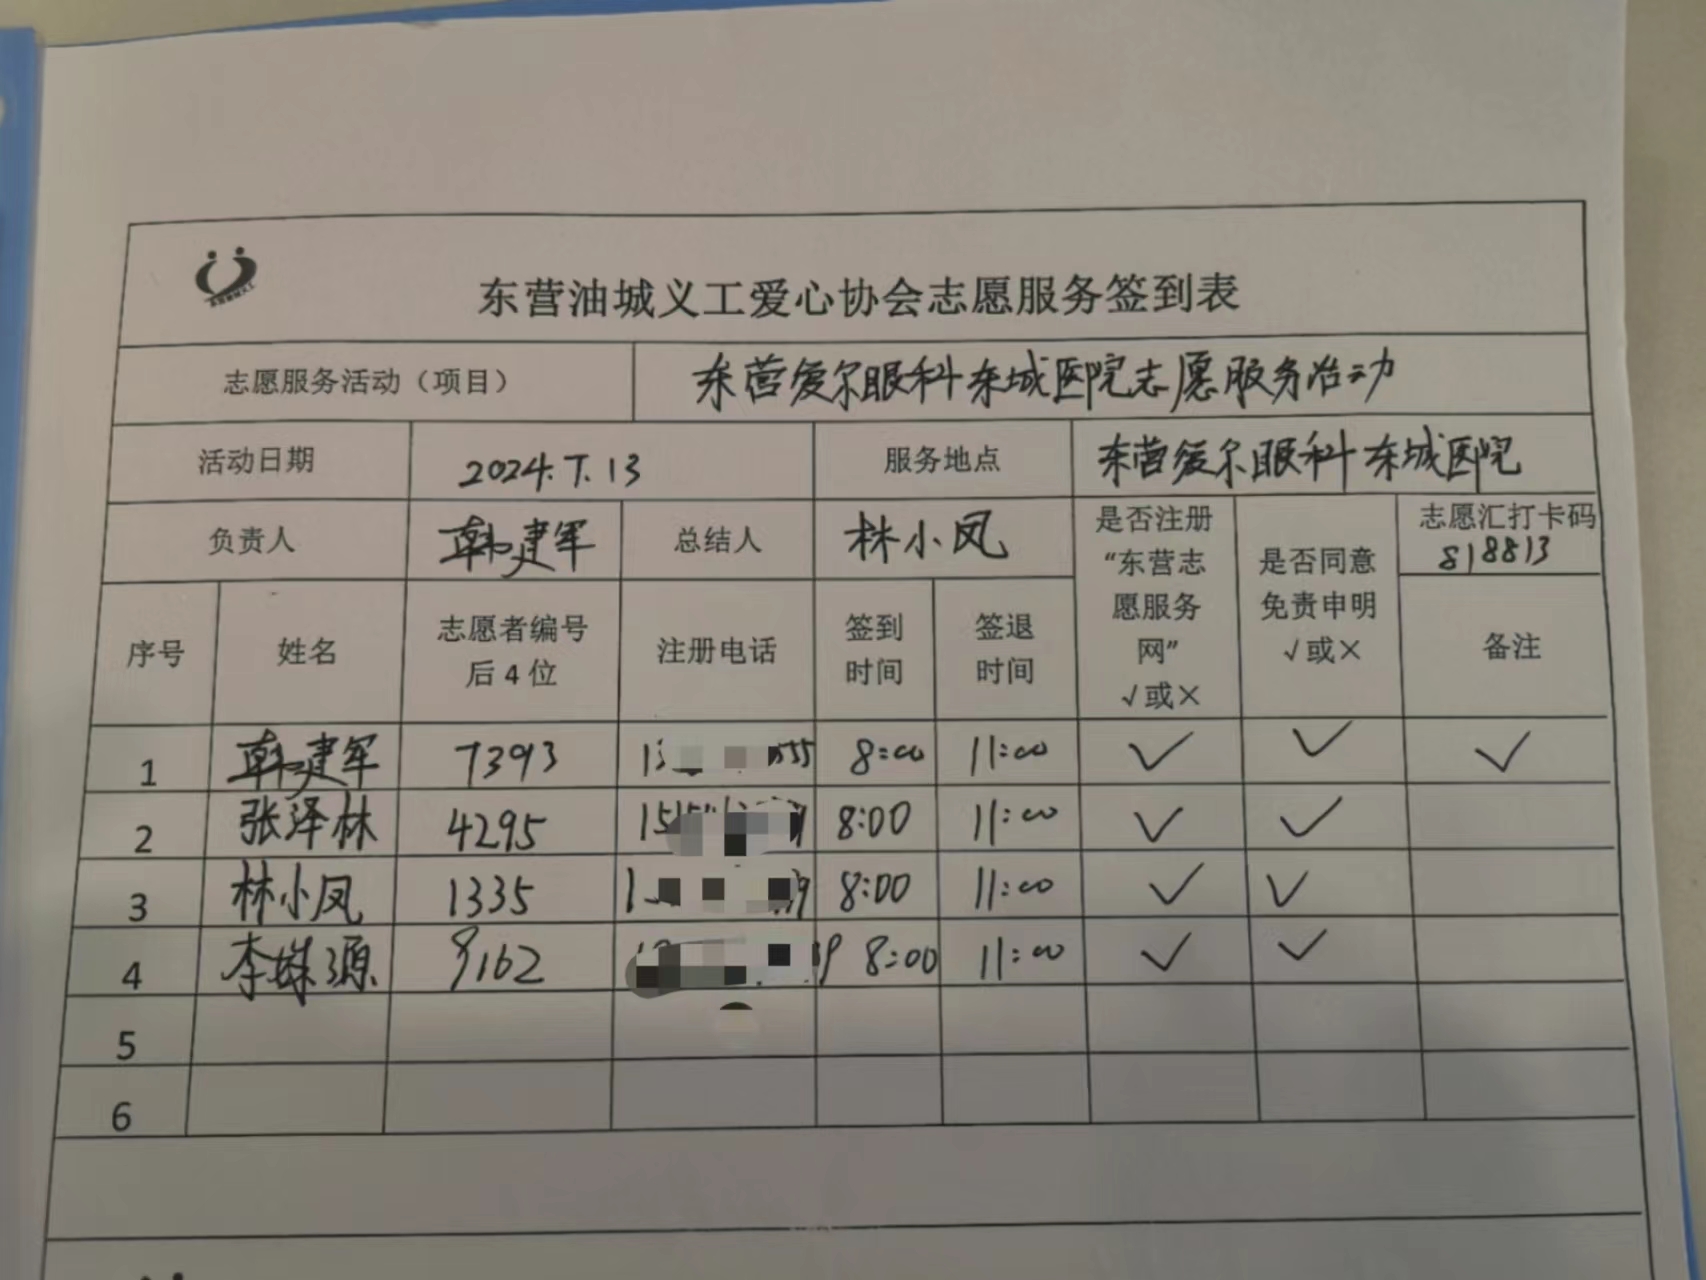 东营油城义工爱心协会志愿服务签到表
志愿服务活动（项目） 东营爱尔眼科东城医院志愿服务活动
活动日期 2024.7.13 服务地点 东营爱尔眼科东城医院
负责人 韩建军 总结人 林小凤 是否注册“东营志愿服务网”√或× 是否同意免责申明√或× 志愿汇打卡码 818813
序号 姓名 志愿者编号后4位 注册电话 签到时间 签退时间 备注
1 韩建军 7393 8:00 11:00 ✓ ✓ ✓
2 张泽林 4295 8:00 11:00 ✓ ✓
3 林小凤 1335 8:00 11:00 ✓ ✓
4 李姝源 9162 8:00 11:00 ✓ ✓
5
6